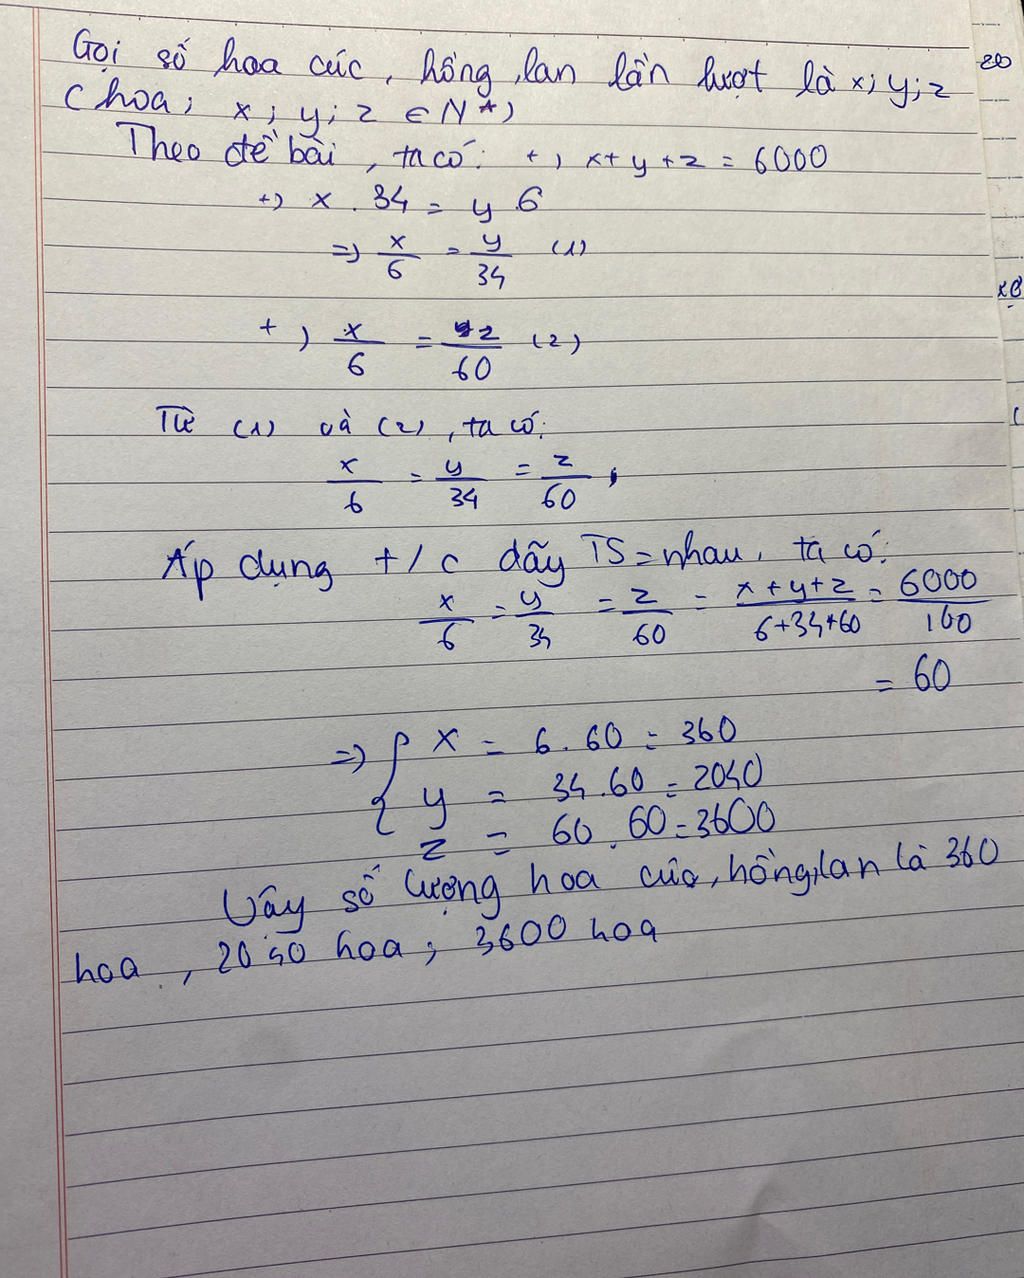 Gọi số hoa cúc, hồng, lan lần lượt là x; y; z
(hoa; x; y; z ∈ N*)
Theo đề bài, ta có: +, x + y + z = 6000
+) x . 34 = y 6
=> x/6 = y/34 (1)
+) x/6 = z/60 (2)
Từ (1) và (2), ta có:
x/6 = y/34 = z/60,
Áp dụng t/c dãy TS = nhau, ta có:
x/6 = y/34 = z/60 = x+y+z/6+34+60 = 6000/100
= 60
=> { x = 6 . 60 = 360
y = 34 . 60 = 2040
z = 60 . 60 = 3600
Vậy số lượng hoa cúc, hồng, lan là 360
hoa, 2040 hoa; 3600 hoa
20